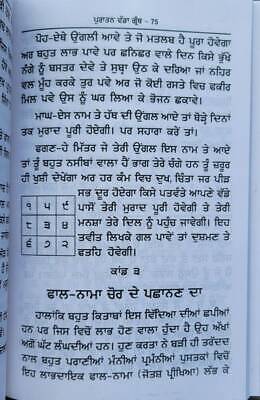 ਪੁਰਾਤਨ ਵੱਡਾ ਗ੍ਰੰਥ - 75
ਪੋਹ-ਏਥੇ ਉਂਗਲੀ ਆਵੇ ਤੇ ਜੋ ਮਤਲਬ ਹੈ ਪੂਰਾ ਹੋਵੇਗਾ
ਅਰ ਬਹੁਤ ਲਾਭ ਪਾਵੇ ਪਰ ਛਨਿਛਰ ਵਾਲੇ ਦਿਨ ਕਿਸੇ ਭੁੱਖੇ
ਨੰਗੇ ਨੂੰ ਬਸਤਰ ਦੇਵੇ ਤੇ ਸੁਬਾ ਉਠ ਕੇ ਦਰਿਆ ਜਾਂ ਨਹਿਰ
ਵਲ ਮੂੰਹ ਕਰਕੇ ਤੁਰ ਪਵੇ ਅਰ ਜੋ ਕੋਈ ਰਸਤੇ ਵਿਚ ਫਕੀਰ
ਮਿਲ ਪਵੇ ਉਸ ਨੂੰ ਘਰ ਲਿਆ ਕੇ ਭੋਜਨ ਛਕਾਵੇ।
ਮਾਘ-ਏਸ ਨਾਮ ਤੇ ਹੱਥ ਦੀ ਉਂਗਲ ਆਏ ਤਾਂ ਥੋੜੇ ਦਿਨਾਂ
ਤਕ ਮੁਰਾਦ ਪੂਰੀ ਹੋਏਗੀ। ਪਰ ਸਹਾਰਾ ਕਰੇਂ ਤਾਂ।
ਫਗਣ-ਹੇ ਮਿੱਤਰ ਜੇ ਤੇਰੀ ਉਂਗਲ ਇਸ ਨਾਮ ਤੇ ਆਏ
ਤਾਂ ਤੂੰ ਬਹੁਤ ਨਸੀਬਾਂ ਵਾਲਾ ਹੈਂ ਭਾਗ ਤੇਰੇ ਚੰਗੇ ਹਨ ਤੂੰ ਜ਼ਰੂਰ
ਹੀ ਖੁਸ਼ੀ ਦੇਖੇਂਗਾ ਅਰ ਹਰ ਇਕ ਕਮ ਵਿਚ ਲਾਭ ਦੁਖ, ਚਿੰਤਾ ਜਰ ਪੀੜ
ਸਭ ਦੂਰ ਹੋਏਗਾ ਕਿਸੇ ਪਤਵੰਤੇ ਆਪਣੇ ਵੱਡੇ
ਪਾਸੋਂ ਤੇਰੀ ਮੁਰਾਦ ਪੂਰੀ ਹੋਵੇਗੀ ਤੇ ਤੇਰੀ
ਮਨਸ਼ਾ ਤੇਰੇ ਦਿਲ ਨੂੰ ਪਹੁੰਚ ਜਾਵੇਗੀ। ਇਹ
ਤਵੀਤ ਲਿਖਕੇ ਗਲ ਪਾਵੇਂ ਤਾਂ ਦੁਸ਼ਮਣ ਤੇ
ਫਤਹਿ ਹੋਵੇਗੀ।
੧ ੫ ੯
੮ ੩ ੪
੬ ੭ ੨
ਕਾਂਡ ੩
ਫਾਲ-ਨਾਮਾ ਚੋਰ ਦੇ ਪਛਾਨਣ ਦਾ
ਹਾਲਾਂਕਿ ਬਹੁਤ ਕਿਤਾਬਾਂ ਇਸ ਵਿੱਦਿਆ ਦੀਆਂ ਛਪੀਆਂ
ਹਨ ਪਰ ਜਿਸ ਵਿਚੋਂ ਲਾਭ ਹੋਣ ਵਾਲਾ ਹੁੰਦਾ ਹੈ ਉਹ ਅੱਖਾਂ
ਅਗੋਂ ਘੱਟ ਲੰਘਦੀਆਂ ਹਨ। ਹੁਣ ਕਰਤਾ ਨੇ ਬੜੀ ਹੀ ਤਰੱਦਦ
ਨਾਲ ਬਹੁਤ ਪੁਰਾਣੀਆਂ ਮੰਨੀਆਂ ਪ੍ਰਮੰਨੀਆਂ ਪੁਸਤਕਾਂ ਵਿਚੋਂ
ਇਹ ਲਾਭਦਾਇਕ ਫਾਲ-ਨਾਮਾ (ਜੋਤਸ਼ ਪ੍ਰੀਖਿਆ) ਲੱਭ ਕੇ